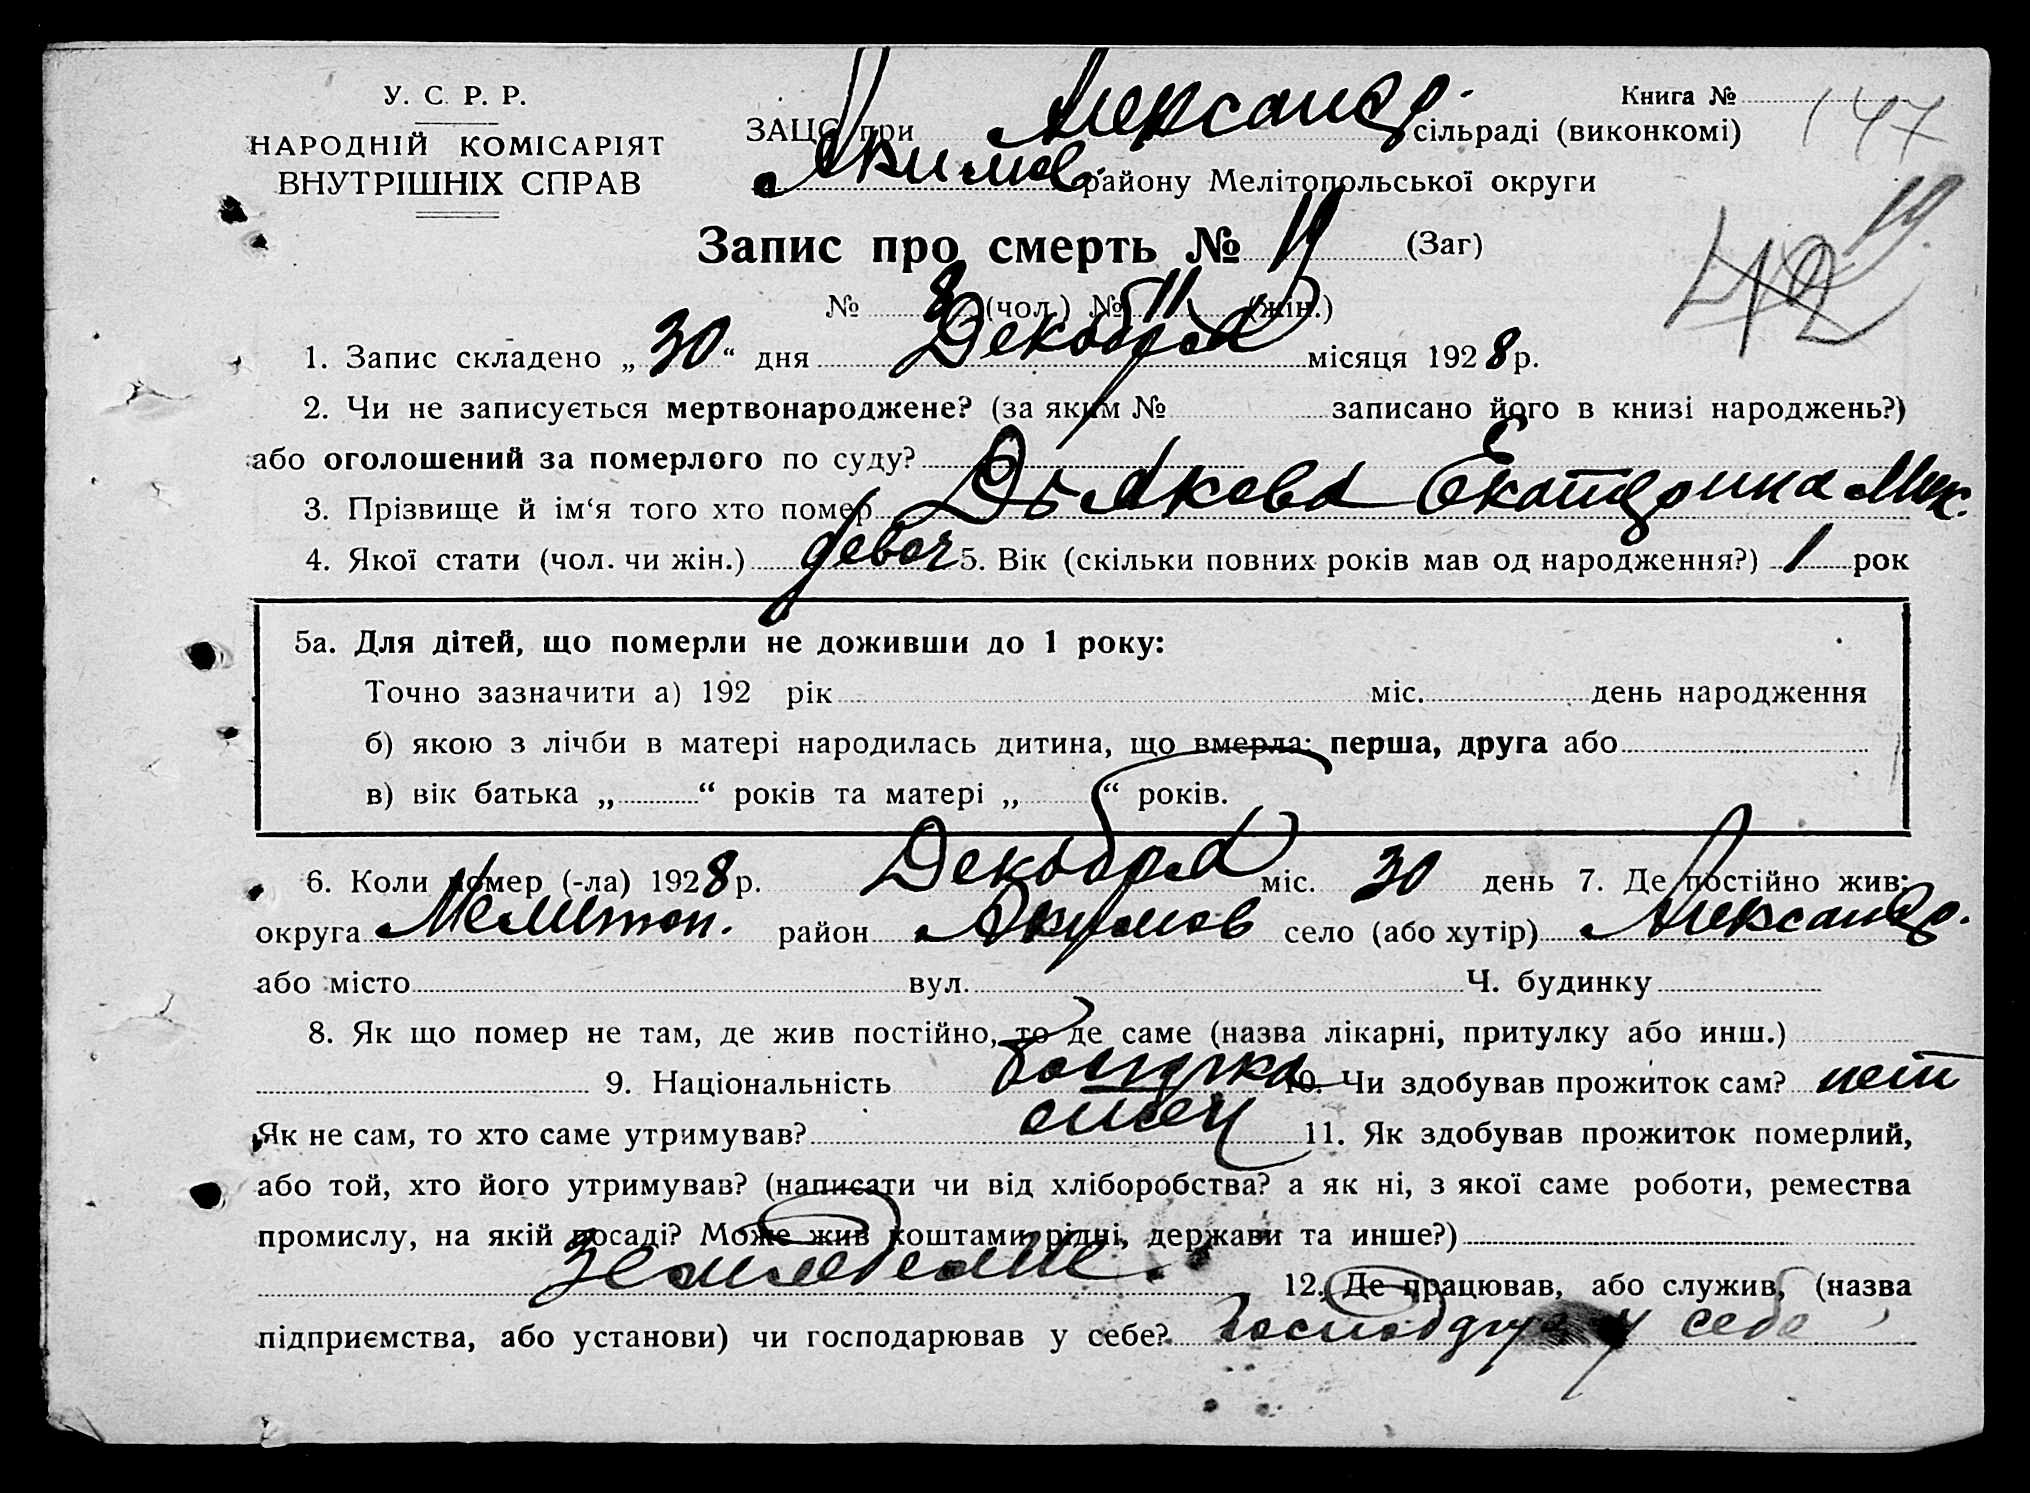 У. С. Р. Р.
НАРОДНІЙ КОМІСАРІЯТ
ВНУТРІШНІХ СПРАВ
Книга № 147
ЗАЦС при Александр. сільраді (виконкомі)
Акимов. району Мелітопольської округи
19.
42
Запис про смерть № 19 (Заг)
№ 8 (чол.) № 11 (жін.)
1. Запис складено „30“ дня Декабря місяця 1928 р.
2. Чи не записується мертвонароджене? (за яким № записано його в книзі народжень?)
або оголошений за померлого по суду?
3. Прізвище й ім‘я того хто помер Дьякова Екатерина Мих.
4. Якої стати (чол. чи жін.) девоч 5. Вік (скільки повних років мав од народження?) 1 рок
5а. Для дітей, що померли не доживши до 1 року:
Точно зазначити а) 192 рік міс. день народження
б) якою з лічби в матері народилась дитина, що вмерла: перша, друга або
в) вік батька „ “ років та матері „ “ років.
6. Коли помер (-ла) 1928 р. Декабря міс. 30 день 7. Де постійно жив:
округа Мелитоп. район Акимов село (або хутір) Александр.
або місто вул. Ч. будинку
8. Як що помер не там, де жив постійно, то де саме (назва лікарні, притулку або инш.)
9. Національність болгарка 10. Чи здобував прожиток сам? нет
Як не сам, то хто саме утримував? отец 11. Як здобував прожиток померлий,
або той, хто його утримував? (написати чи від хліборобства? а як ні, з якої саме роботи, ремества
промислу, на якій посаді? Може жив коштами рідні, держави та инше?)
Земледелие. 12. Де працював, або служив, (назва
підприємства, або установи) чи господарював у себе? у себе